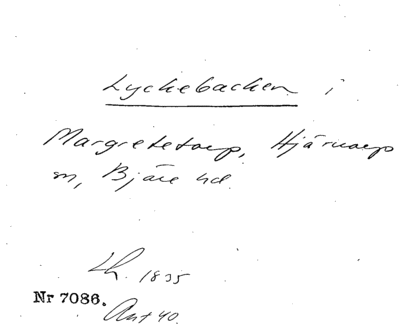 Lyckebacken i
Margretetorp, Hjärnarp
sn, Bjäre hd.
Lh. 1835
Nr 7086.
Ant 40.